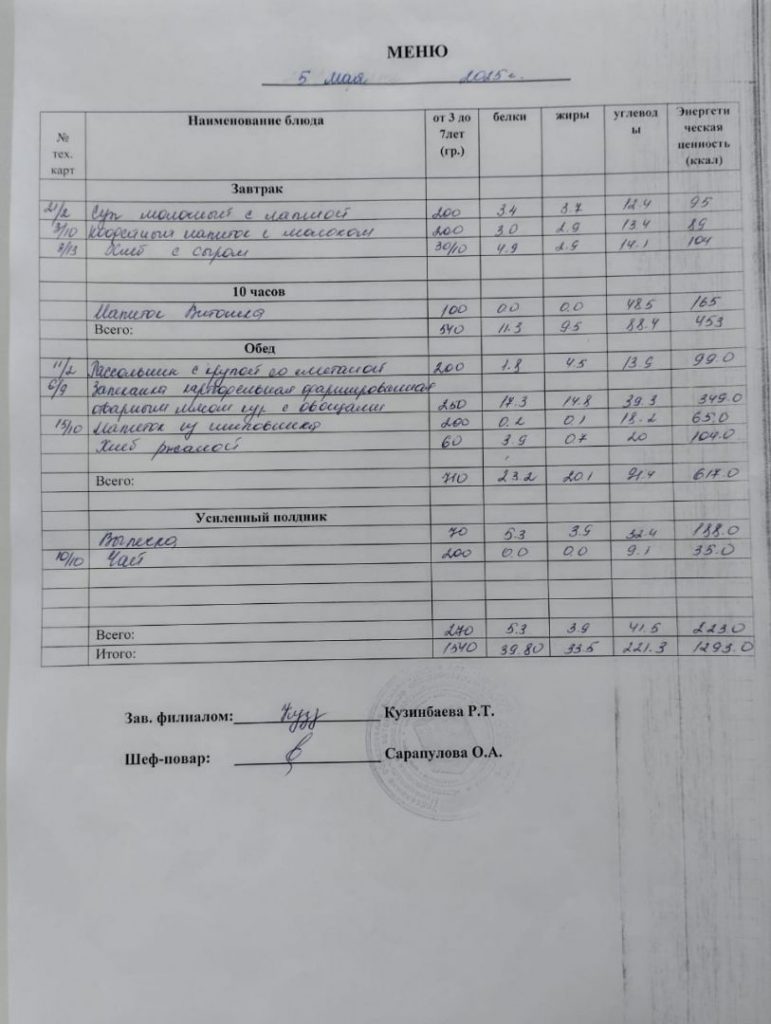 МЕНЮ
5 мая 2025 г.
№ тех. карт Наименование блюда от 3 до 7лет (гр.) белки жиры углеводы Энергетическая ценность (ккал)
Завтрак
21/2 Суп молочный с лапшой 200 3.4 3.7 12.4 95
3/10 Кофейный напиток с молоком 200 3.0 2.9 13.4 89
2/13 Хлеб с сыром 30/10 4.9 2.9 14.1 104
10 часов
Напиток Витошка 100 0.0 0.0 48.5 165
Всего: 540 11.3 9.5 88.4 453
Обед
11/2 Рассольник с крупой со сметаной 200 1.8 4.5 13.9 99.0
6/9 Запеканка картофельная фаршированная
отварным мясом кур с овощами 250 17.3 14.8 39.3 349.0
15/10 Напиток из шиповника 200 0.2 0.1 18.2 65.0
Хлеб ржаной 60 3.9 0.7 20 104.0
Всего: 710 23.2 20.1 91.4 617.0
Усиленный полдник
Выпечка 70 5.3 3.9 32.4 188.0
10/10 Чай 200 0.0 0.0 9.1 35.0
Всего: 270 5.3 3.9 41.5 223.0
Итого: 1540 39.80 33.5 221.3 1293.0
Зав. филиалом: Кузинбаева Р.Т.
Шеф-повар: Сарапулова О.А.